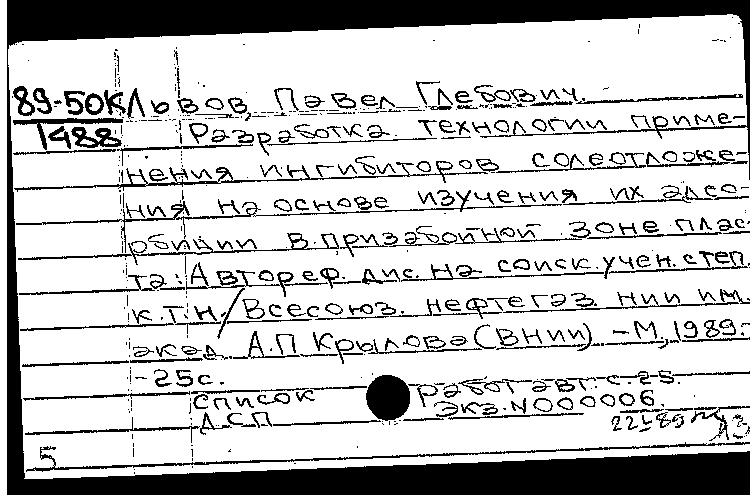 89-50К Львов, Павел Глебович.
1488 Разработка технологии приме-
нения ингибиторов солеотложе-
ния на основе изучения их адсо-
рбиции в призабойной зоне плас-
та: Автореф. дис. на соиск. учен. степ.
к.т.н./ Всесоюз. нефтегаз. нии им.
акад. А.П Крылова (ВНИИ) -М, 1989.-
-25с.
список работ авт.: с.25.
ДСП Экз. N000006.
5